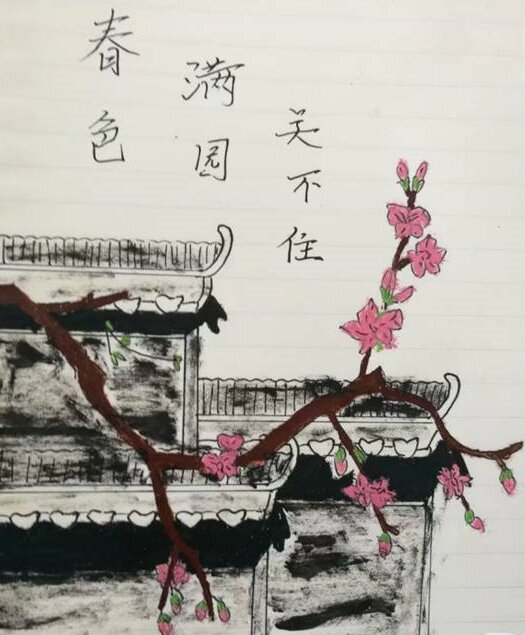 春色
满园
关不住